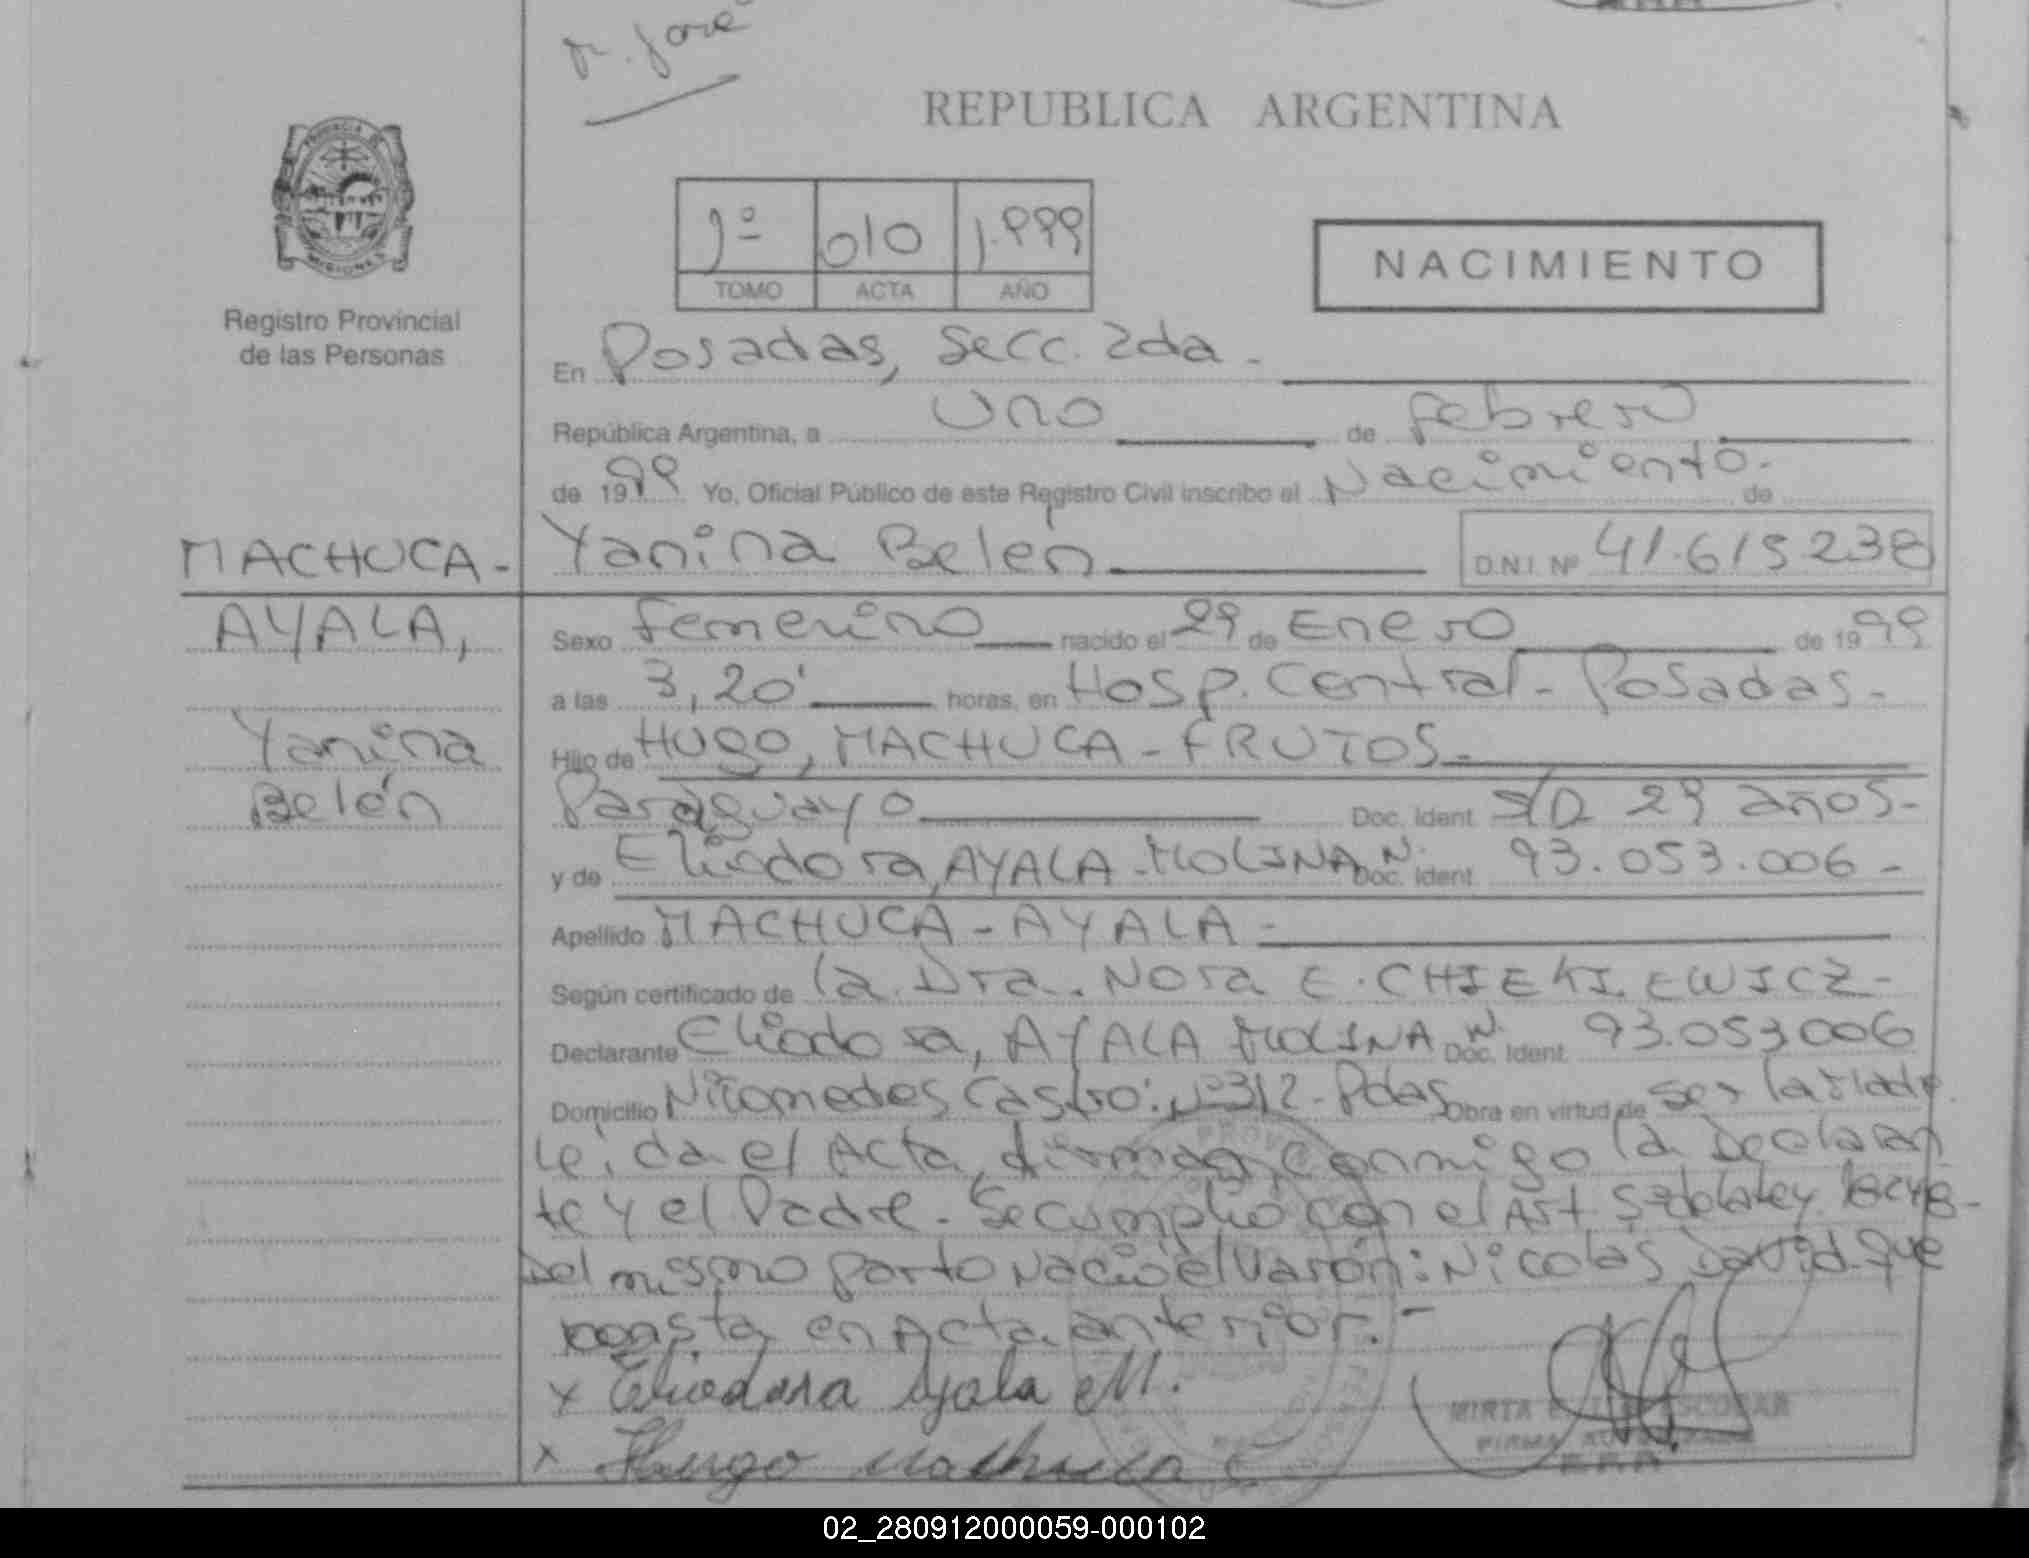 REPUBLICA ARGENTINA
PROVINCIA DE
MISIONES
Registro Provincial
de las Personas
1º 010 1.999
TOMO ACTA AÑO
NACIMIENTO
En Posadas, Secc. 2da -
República Argentina, a uno de febrero
de 1999 Yo, Oficial Público de este Registro Civil inscribo el Nacimiento - de
MACHUCA - Yanina Belén D.N.I. Nº 41.615238
AYALA,
Yanina
Belén
Sexo femenino nacido el 29 de Enero de 1999
a las 3,20' horas, en Hosp. Central - Posadas -
Hijo de HUGO, MACHUCA - FRUTOS -
Paraguayo Doc. Ident. S/D 29 años -
y de Eliodora, AYALA - MOLINA N. Doc. Ident. 93.053.006 -
Apellido MACHUCA - AYALA -
Según certificado de la Dra. Nora E.
Declarante Eliodora, AYALA MOLINA N. Doc. Ident. 93.053006
Domicilio Nicomedes Castro: 312 - Pdas Obra en virtud de ser la Madre.
Leída el Acta, firman conmigo la Declaran
te y el Padre. Se cumplió con el Art.
Del mismo parto nació el varón: Nicolás David que
consta en Acta anterior. -
x Eliodora Ayala M.
x Hugo Machuca
MIRTA ESCOBAR
FIRMA AUTORIZADA
02_280912000059-000102